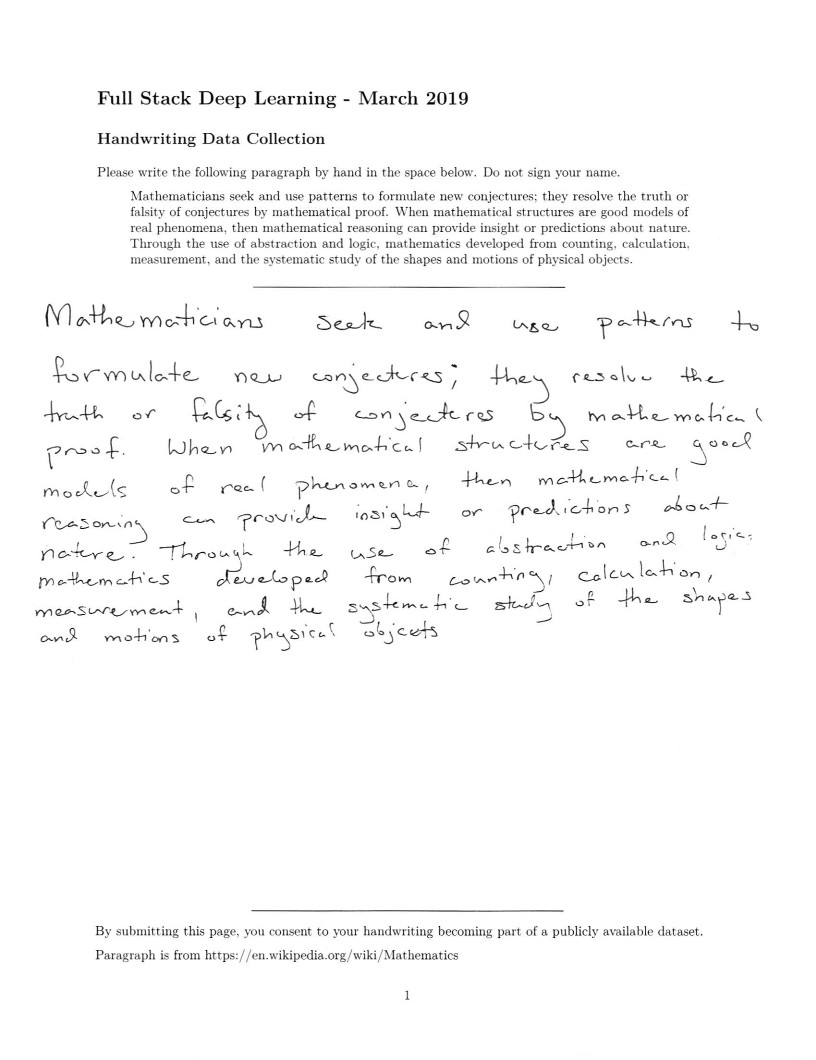 Full Stack Deep Learning - March 2019
Handwriting Data Collection
Please write the following paragraph by hand in the space below. Do not sign your name.
Mathematicians seek and use patterns to formulate new conjectures; they resolve the truth or
falsity of conjectures by mathematical proof. When mathematical structures are good models of
real phenomena, then mathematical reasoning can provide insight or predictions about nature.
Through the use of abstraction and logic, mathematics developed from counting, calculation,
measurement, and the systematic study of the shapes and motions of physical objects.
Mathematicians seek and use patterns to
formulate new conjectures; they resolve the
truth or falsity of conjectures by mathematical
proof. When mathematical structures are good
models of real phenomena, then mathematical
reasoning can provide insight or predictions about
nature. Through the use of abstraction and logic,
mathematics developed from counting, calculation,
measurement, and the systematic study of the shapes
and motions of physical objects
By submitting this page, you consent to your handwriting becoming part of a publicly available dataset.
Paragraph is from https://en.wikipedia.org/wiki/Mathematics
1